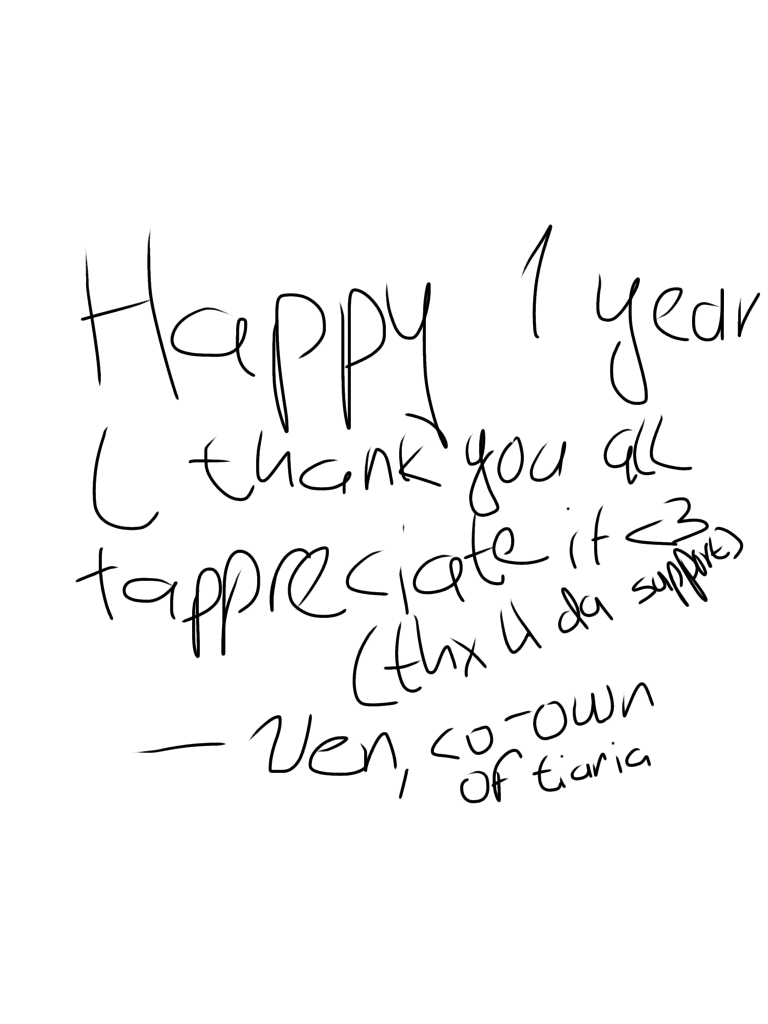 Happy 1 year
( thank you all
tappreciate it <3
(thx 4 da support)
— Ven, co-own
of tiaria